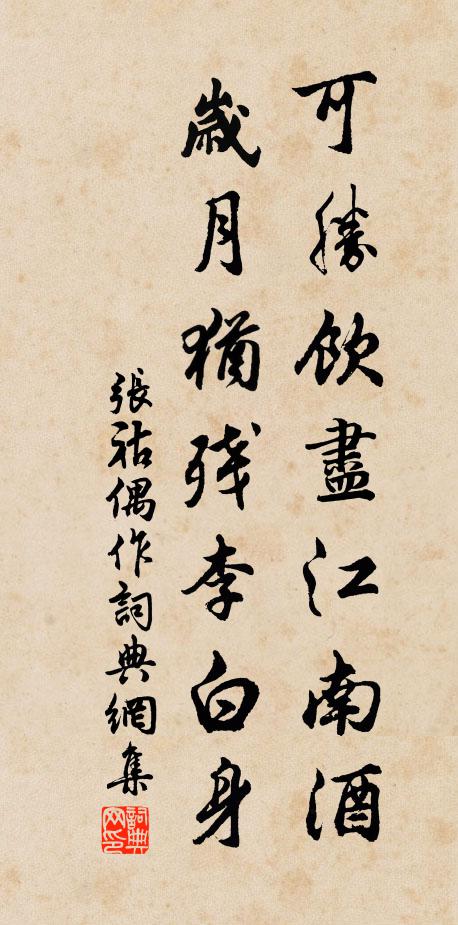 可勝飲盡江南酒
歲月猶殘李白身
張祜偶作詞典網集
詞典網印